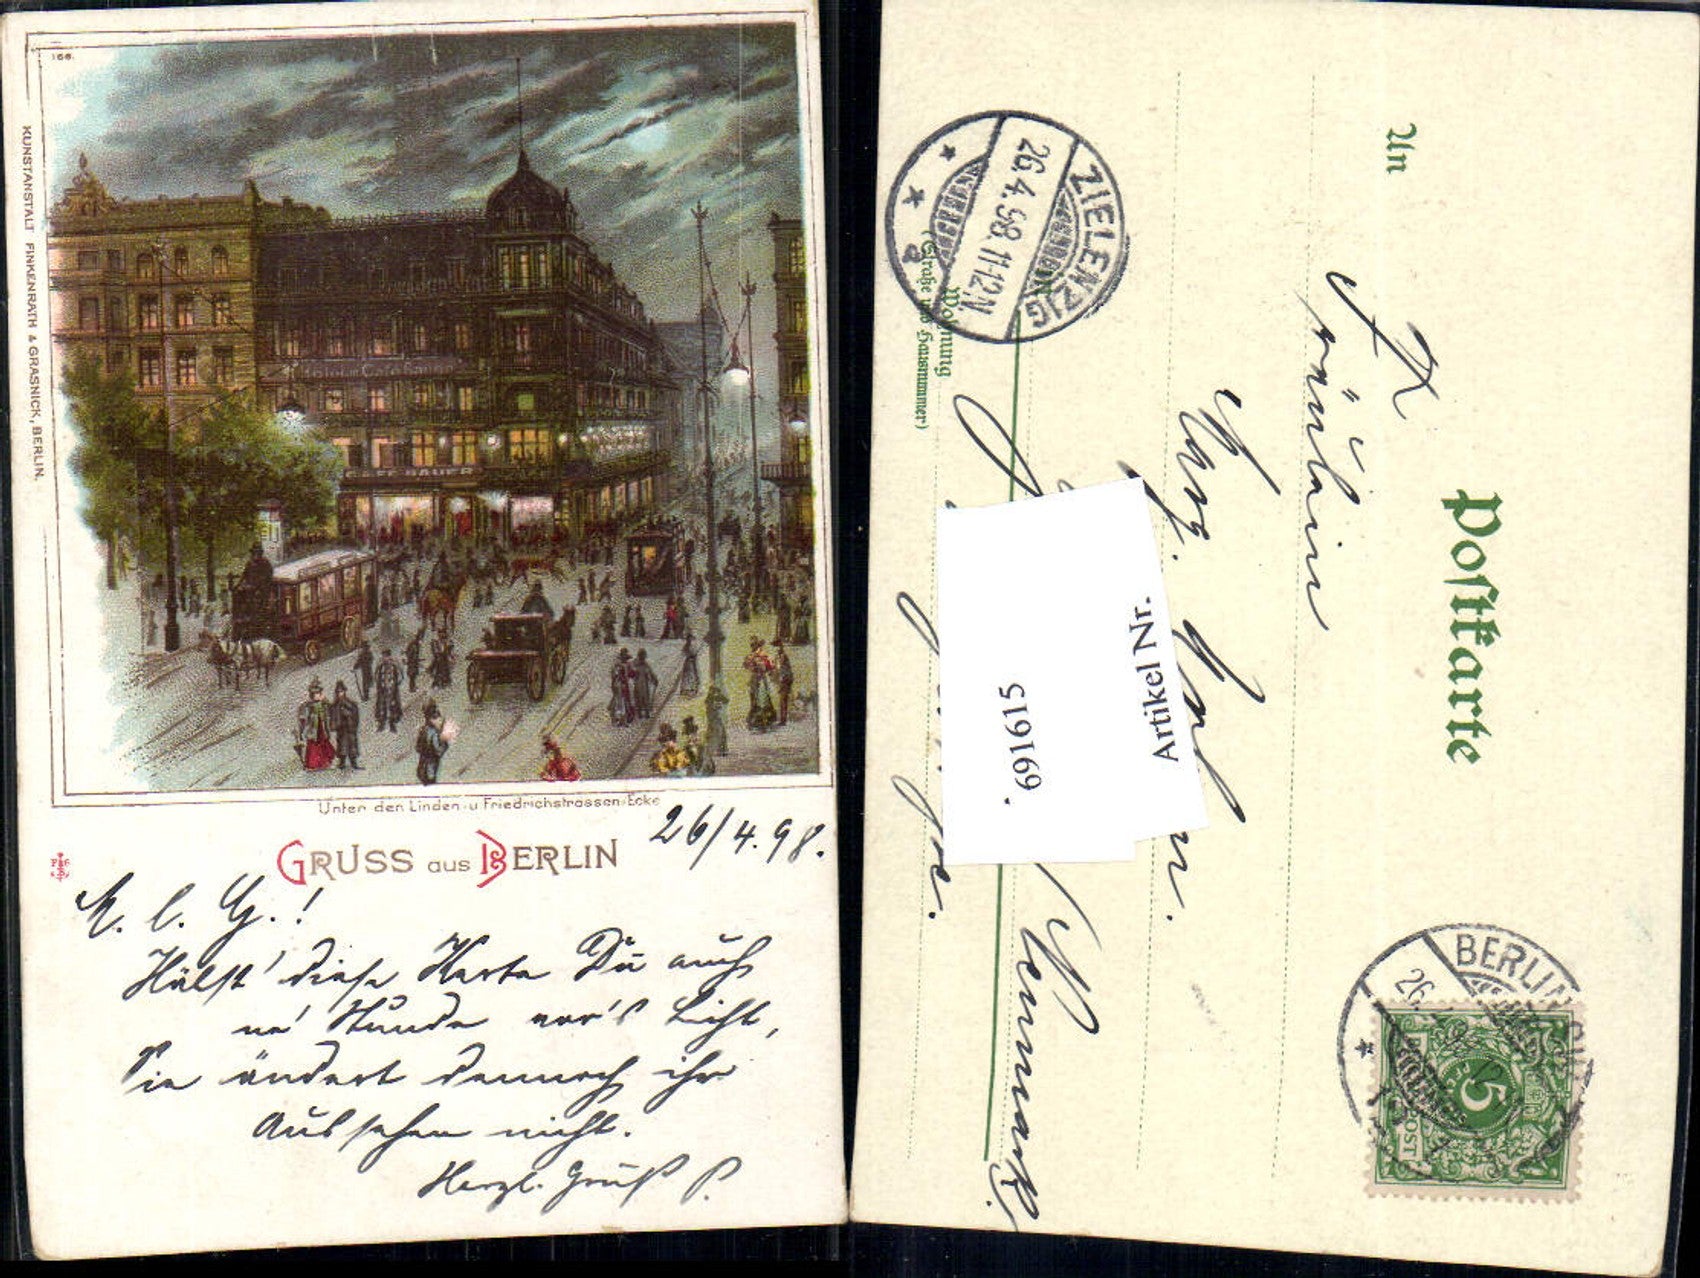 166.
KUNSTANSTALT FINKENRATH & GRASNICK, BERLIN.
Hotel u. Café Bauer
CAFE BAUER
Unter den Linden u Friedrichstrassen-Ecke
GRUSS aus BERLIN
26/4.98.
M. l. G.!
Hälst' diese Karte Du auch
ne' Stunde vor's Licht,
Sie ändert dennoch ihr
Aussehen nicht.
Herzl. Gruß P.
Postkarte
An
Fräulein
Marg.
in
Neumark.
Wohnung
(Straße und Hausnummer)
ZIELENZIG
26.4.98.11-12.N.
a
BERLIN
26.
5
PFG
REICHSPOST
Artikel Nr.
691615